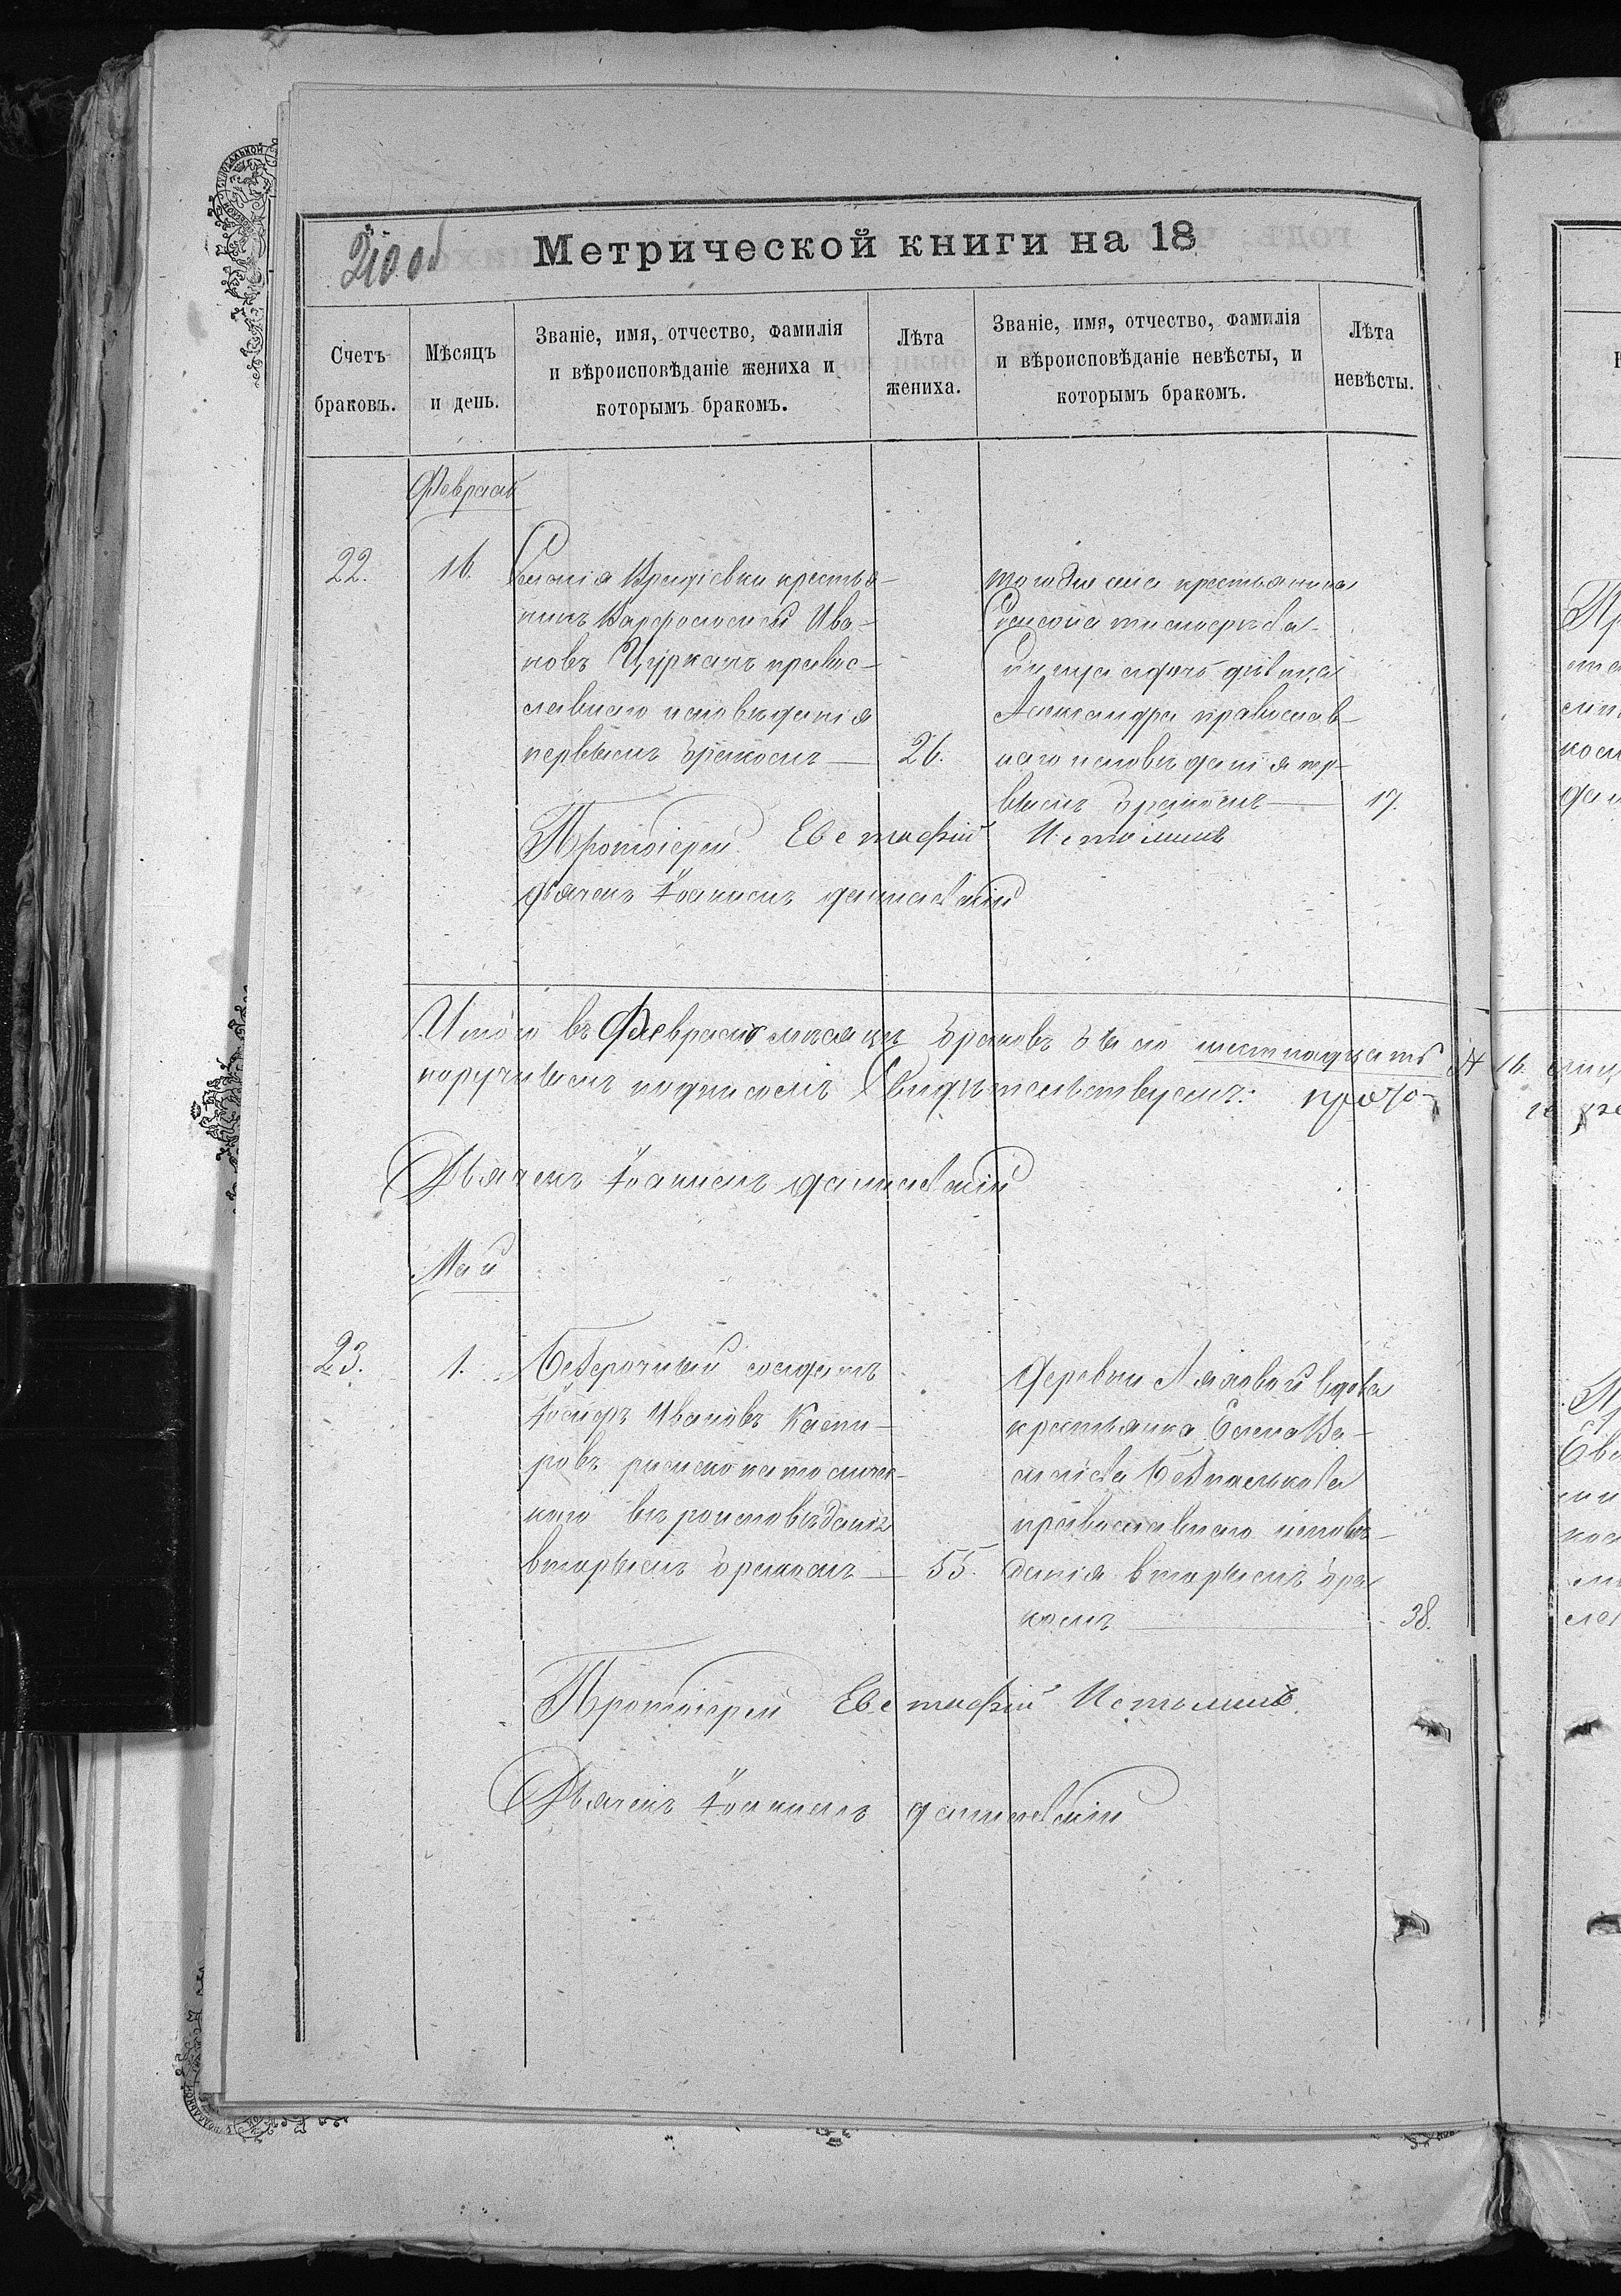 210 об
Метрической книги на 18
Счетъ браковъ.
Мѣсяцъ и день.
Званіе, имя, отчество, фамилія и вѣроисповѣданіе жениха и которымъ бракомъ.
Лѣта жениха.
Званіе, имя, отчество, фамилія и вѣроисповѣданіе невѣсты, и которымъ бракомъ.
Лѣта невѣсты.
Февраль
22.
16.
крестья-
нинъ Варфоломей Ива-
новъ Цурканъ правос-
лавнаго исповѣданія
первымъ бракомъ
26.
тогоже села крестьянина
дочь дѣвица
Александра православ-
наго исповѣданія пер-
вымъ бракомъ
17.
Протоіерей Евстафій Истоминъ
дьячекъ Іоакимъ
Итого въ Февралѣ мѣсяцѣ браковъ было шестнадцать 16.
подписомъ Свидѣтельствуемъ: прото-
Дьячекъ Іоакимъ
Май
23.
1.
Безсрочный солдатъ
Іосифъ Ивановъ Каспи-
ровъ римско католичес-
каго вѣроисповѣданія
вторымъ бракомъ
55.
Деревни Ляховой вдова
крестьянка Елена Ва-
силіева Безпалькова
православнаго исповѣ-
данія вторымъ бра
комъ
38.
Протоіерей Евстафій Истоминъ.
Дьячекъ Іоакимъ